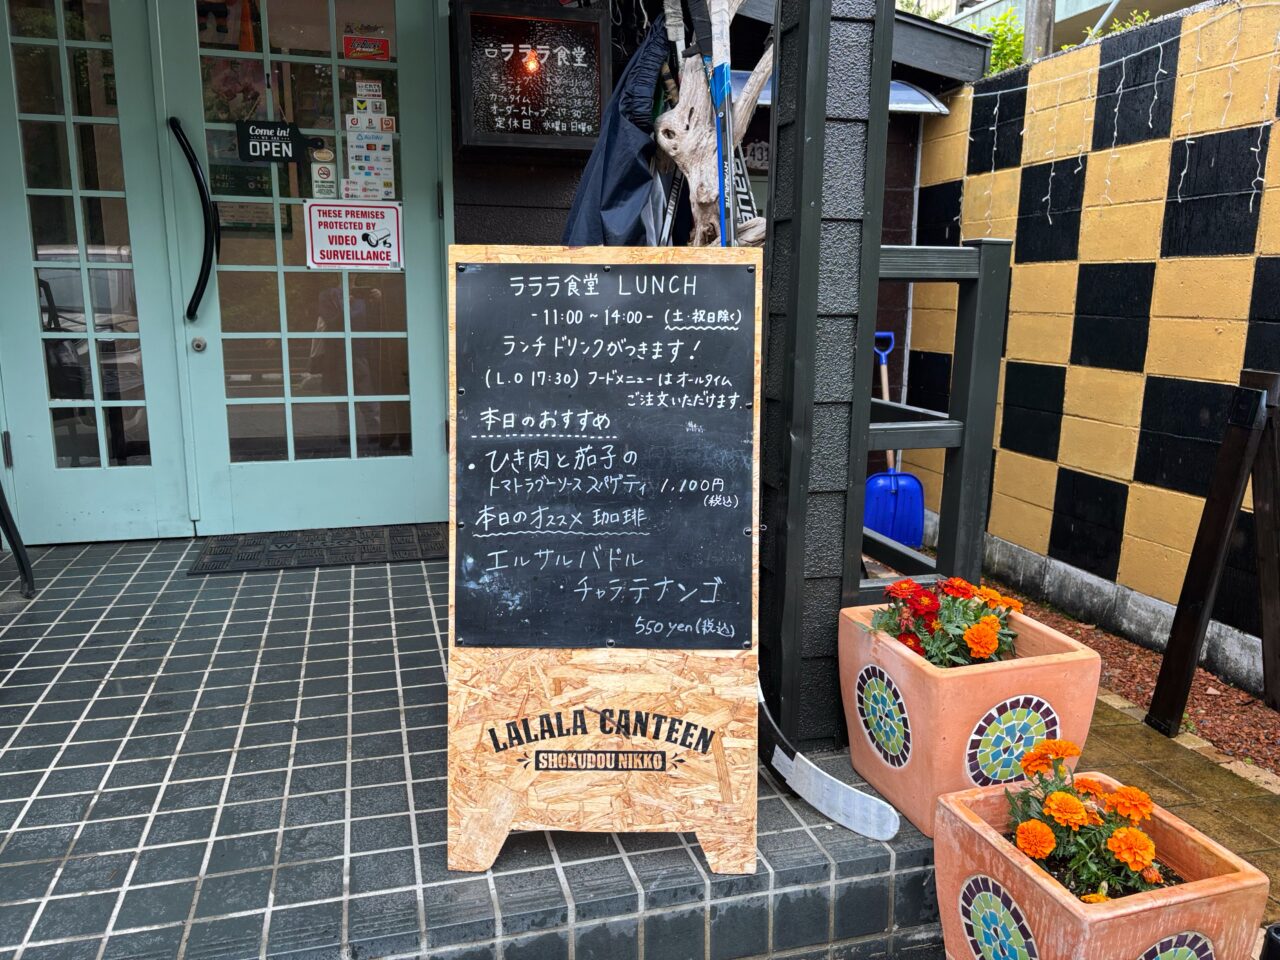 Come in!
WE ARE
OPEN
THESE PREMISES
PROTECTED BY
VIDEO
SURVEILLANCE
ラララ食堂
オーダーストップ 17:30
定休日 水曜日
ラララ食堂 LUNCH
- 11:00 ~ 14:00 - (土・祝日除く)
ランチドリンクがつきます!
(L.O 17:30) フードメニューはオールタイム
ご注文いただけます.
本日のおすすめ
・ひき肉と茄子の
トマトラグーソース スパゲティ 1,100円
(税込)
本日のオススメ 珈琲
エルサルバドル
・チャラテナンゴ
550yen (税込)
LALALA CANTEEN
SHOKUDOU NIKKO